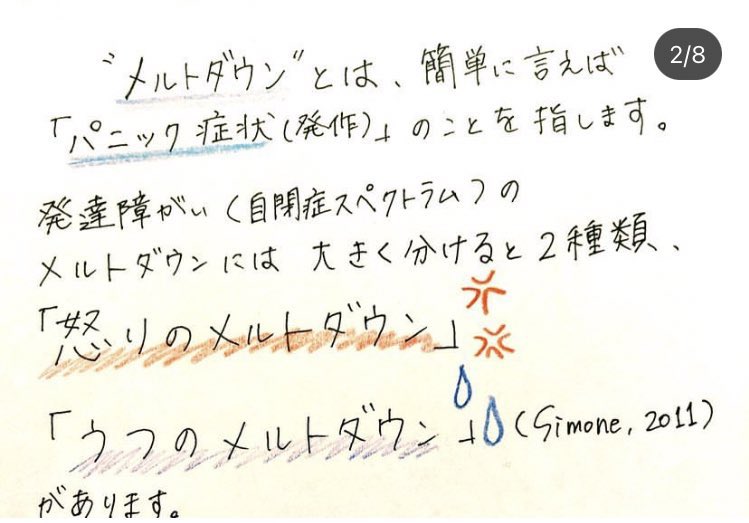 2/8
"メルトダウン"とは、簡単に言えば
「パニック症状(発作)」のことを指します。
発達障がい(自閉症スペクトラム)の
メルトダウンには大きく分けると2種類、
「怒りのメルトダウン」
「うつのメルトダウン」(Simone, 2011)
があります。